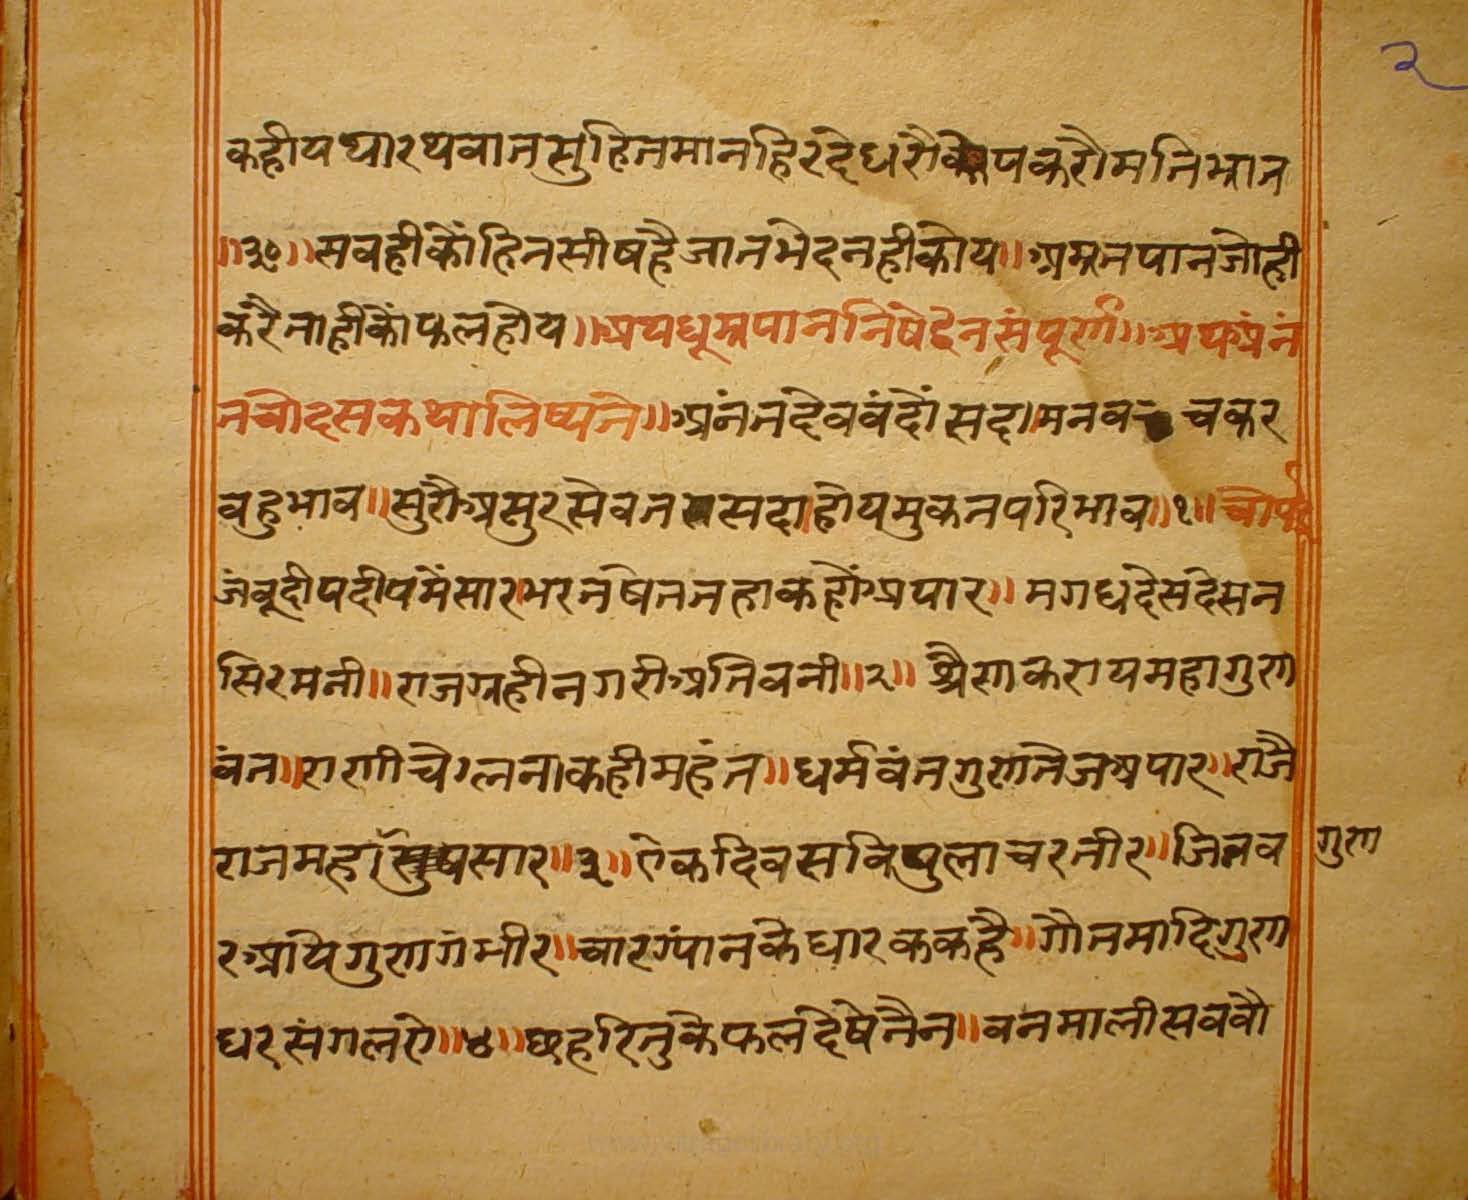 २
कहीयथारथवातसुहितमानहिरदेधरौकोपकरौमतिभ्रात
॥३०॥सवहीकौंहितसीषहैजातभेदनहीकोय॥धूम्रपानजोही
करैताहीकौंफलहोय॥अथधूम्रपाननिषेदनसंपूर्ण॥अथअनं
तचौदसकथालिष्यते॥अनंतदेववंदौंसदा।मनवचकर
वहुभाव॥सुरौअसुरसेवतसदा।होयमुकतपरिभाव॥१॥चौपई
जंबूदीपदीपमैंसार।भरतषेततहाकहौंअपार॥मगधदेसदेसन
सिरमनी॥राजग्रहीनगरीअतिवनी॥२॥श्रेणाकरायमहागुण
वंत॥राणीचेलना।कहीमहंत॥धर्मवंतगुणतेजअपार॥राजै
राजमहासुपसार॥३॥ऐकदिवसविपुलाचरतीर॥जिनव
गुण
रआयेगुणगंभीर॥चारग्यांनकेधारककहै॥गौतमादिगुण
धरसंगलऐ॥४॥छहरितुकेफलदिषेनैन॥वनमालीसववौ